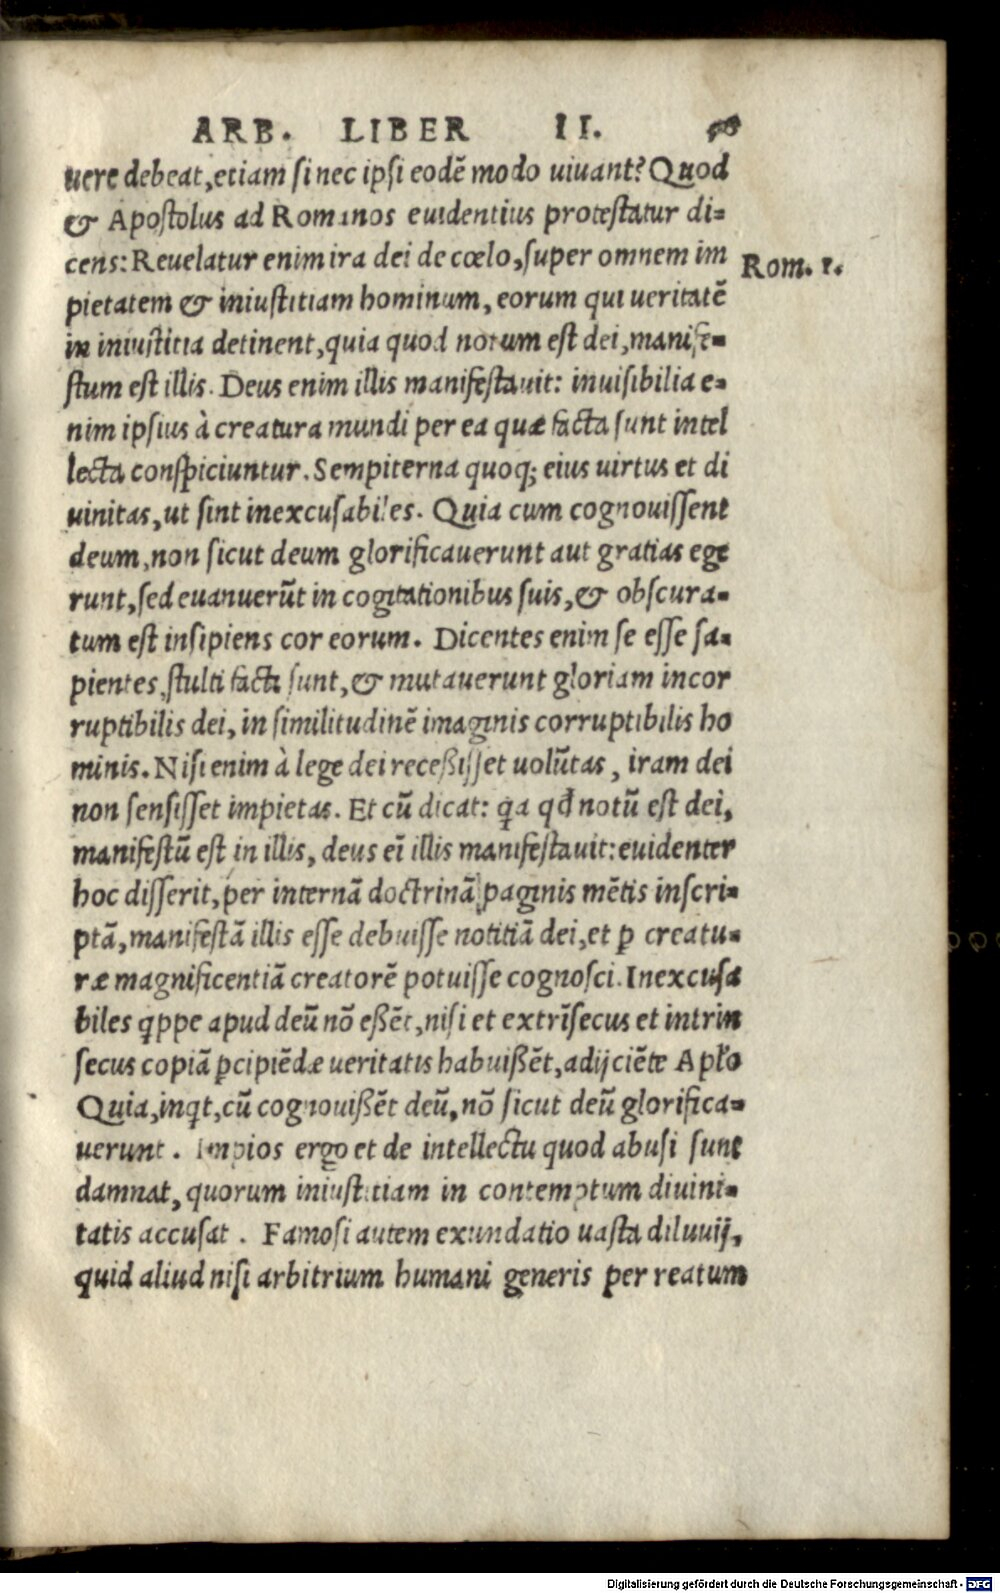 ARB. LIBER II.
uere debeat, etiam si nec ipsi eodē modo uiuant? Quod
& Apostolus ad Romanos euidentius protestatur di=
cens: Reuelatur enim ira dei de cœlo, super omnem im
Rom. 1.
pietatem & iniustitiam hominum, eorum qui ueritatē
in iniustitia detinent, quia quod notum est dei, manife=
stum est illis. Deus enim illis manifestauit: inuisibilia e=
nim ipsius à creatura mundi per ea quæ facta sunt intel
lecta conspiciuntur. Sempiterna quoq; eius uirtus et di
uinitas, ut sint inexcusabiles. Quia cum cognouissent
deum, non sicut deum glorificauerunt aut gratias ege
runt, sed euanuerūt in cogitationibus suis, & obscura=
tum est insipiens cor eorum. Dicentes enim se esse sa=
pientes, stulti facti sunt, & mutauerunt gloriam incor
ruptibilis dei, in similitudinē imaginis corruptibilis ho
minis. Nisi enim à lege dei receßisset uolūtas, iram dei
non sensisset impietas. Et cū dicat: q̃a qđ notū est dei,
manifestū est in illis, deus eī illis manifestauit: euidenter
hoc disserit, per internā doctrinā paginis mētis inscri=
ptā, manifestā illis esse debuisse notitiā dei, et ꝑ creatu=
ræ magnificentiā creatorē potuisse cognosci. Inexcusa
biles q̃ppe apud deū nō eßēt, nisi et extrīsecus et intrin
secus copiā ꝑcipiēdæ ueritatis habuißēt, adijciēte Apło
Quia, inq̃t, cū cognouißēt deū, nō sicut deū glorifica=
uerunt. Impios ergo et de intellectu quod abusi sunt
damnat, quorum iniustitiam in contemptum diuini=
tatis accusat. Famosi autem exundatio uasta diluuij,
quid aliud nisi arbitrium humani generis per reatum
Digitalisierung gefördert durch die Deutsche Forschungsgemeinschaft - DFG